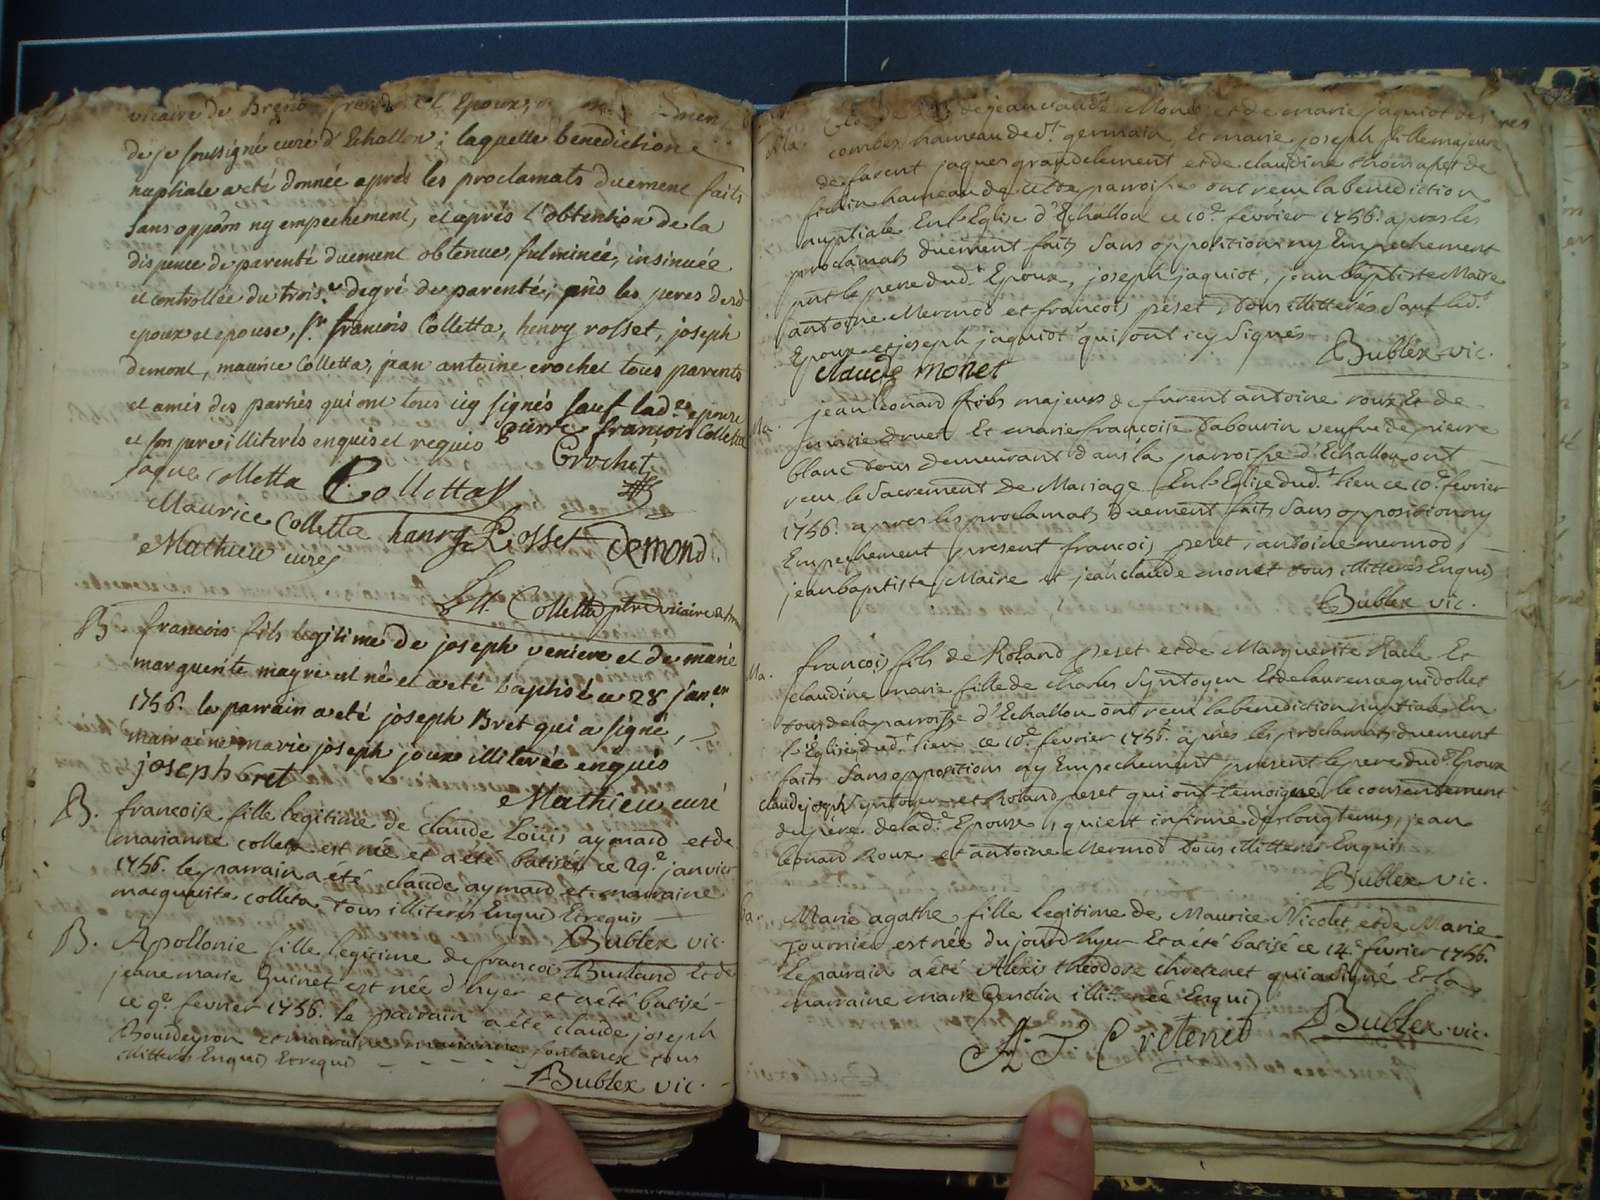 vicaire de Breno
de je soussigné curé d'Echallon; laquelle benediction
nuptiale a eté donnée aprés les proclamats duement faits
sans oppôon ny empechement, et aprés l'obtention de la
dispence de parenté duement obtenue, fulminée, insinuée
et controllée du trois.e degré de parenté; pñs les peres desd
epoux et epouse, Sr. francois Colletta, henry rosset, joseph
demont, maurice Colletta, jean antoine crochet tous parents
et amis des parties qui ont tous icy signés sauf lad.e epouse
et son pere illiterés enquis et requis pierre francois Colletta
Crochet
jaque colletta Collettaz
Maurice Colletta henry Rosset demond
Mathieu curé
Colletta ptre vicaire de
B francois fils legitime de joseph veniere et de marie
marguerite maygre est né et a eté baptisé ce 28 jan.er
1756. le parrain a eté joseph Bret qui a signé,
marraine marie joseph joux illiterée enquis
joseph bret
Mathieu curé
B. francoise fille legitime de claude Loüis aymard et de
marianne colleta est née et a eté batisée ce 29.e janvier
1756. le parrain a été claude aymard et marraine
marguerite colleta tous illiterés Enquis Et requis
Bublex vic.
B. Apollonie fille legitime de francois Burland Et de
jeane marie Guinet est née d'hyer et a été batisé
ce 9.e février 1756. le parrain a été claude joseph
Bourdeyron et marraine marianne fontanex tous
illitterés Enquis Et requis
Bublex vic.
de jean claude Monet et de marie jaquiot des
Ma. combes hameau de st. germain Et marie joseph fille majeure
de farent jaques grandclement et de claudine thomasset de
hameau de cette parroisse ont reçu la benediction
nuptiale En l'Eglise d'Echallon ce 10.e février 1756. apres les
proclamats duement faits Sans opposition ny Empechement
pnt le pere dud.t Epoux, joseph jaquiot, jean baptiste Maire
antoine Mermod et francois peret tous illitteres Sauf led.t
Epoux et joseph jaquiot qui sont icy Signés
Bublex vic.
claude monet
Ma. jean leonard fils majeur de furent antoine roux Et de
marie druet Et marie francoise dabourin veufve de pierre
blanc tous demeurant dans la parroisse d'Echallon ont
reçu le Sacrement de Mariage En l'Eglise dud.t lieu ce 10.e fevrier
1756. apres les proclamats Duement faits Sans opposition ny
Empechement present francois peret, antoine mermod,
jean baptiste Maire et jean claude monet tous illitteres Enquis
Bublex vic.
Ma. francois fils de Roland peret et de Marguerite Racle Et
claudine marie fille de charles Syntoyen Et de laurence quidollet
tous de la parroisse d'Echallon ont reçu la benediction nuptiale En
l'Eglise dud.t lieu ce 10.e fevrier 1756. après les proclamats duement
faits Sans oppositions ny Empechement present le pere dud.t Epoux
claude joseph Syntoyen et Roland peret qui ont temoigné le consentement
du père de lad.e Epouse, qui est infirme dès longtems, jean
leonard Roux et antoine Mermod tous illitterés Enquis
Bublex vic.
Ba. Marie agathe fille legitime de Maurice Nicolet et de Marie
Tournier est née du jourd'hyer Et a été batisé ce 14.e février 1756.
Le parrain a été Alexi théodore chretenet qui a signé Et la
marraine marie Gendlin illitterée Enquis
Bublex vic.
A. T. Cretenet